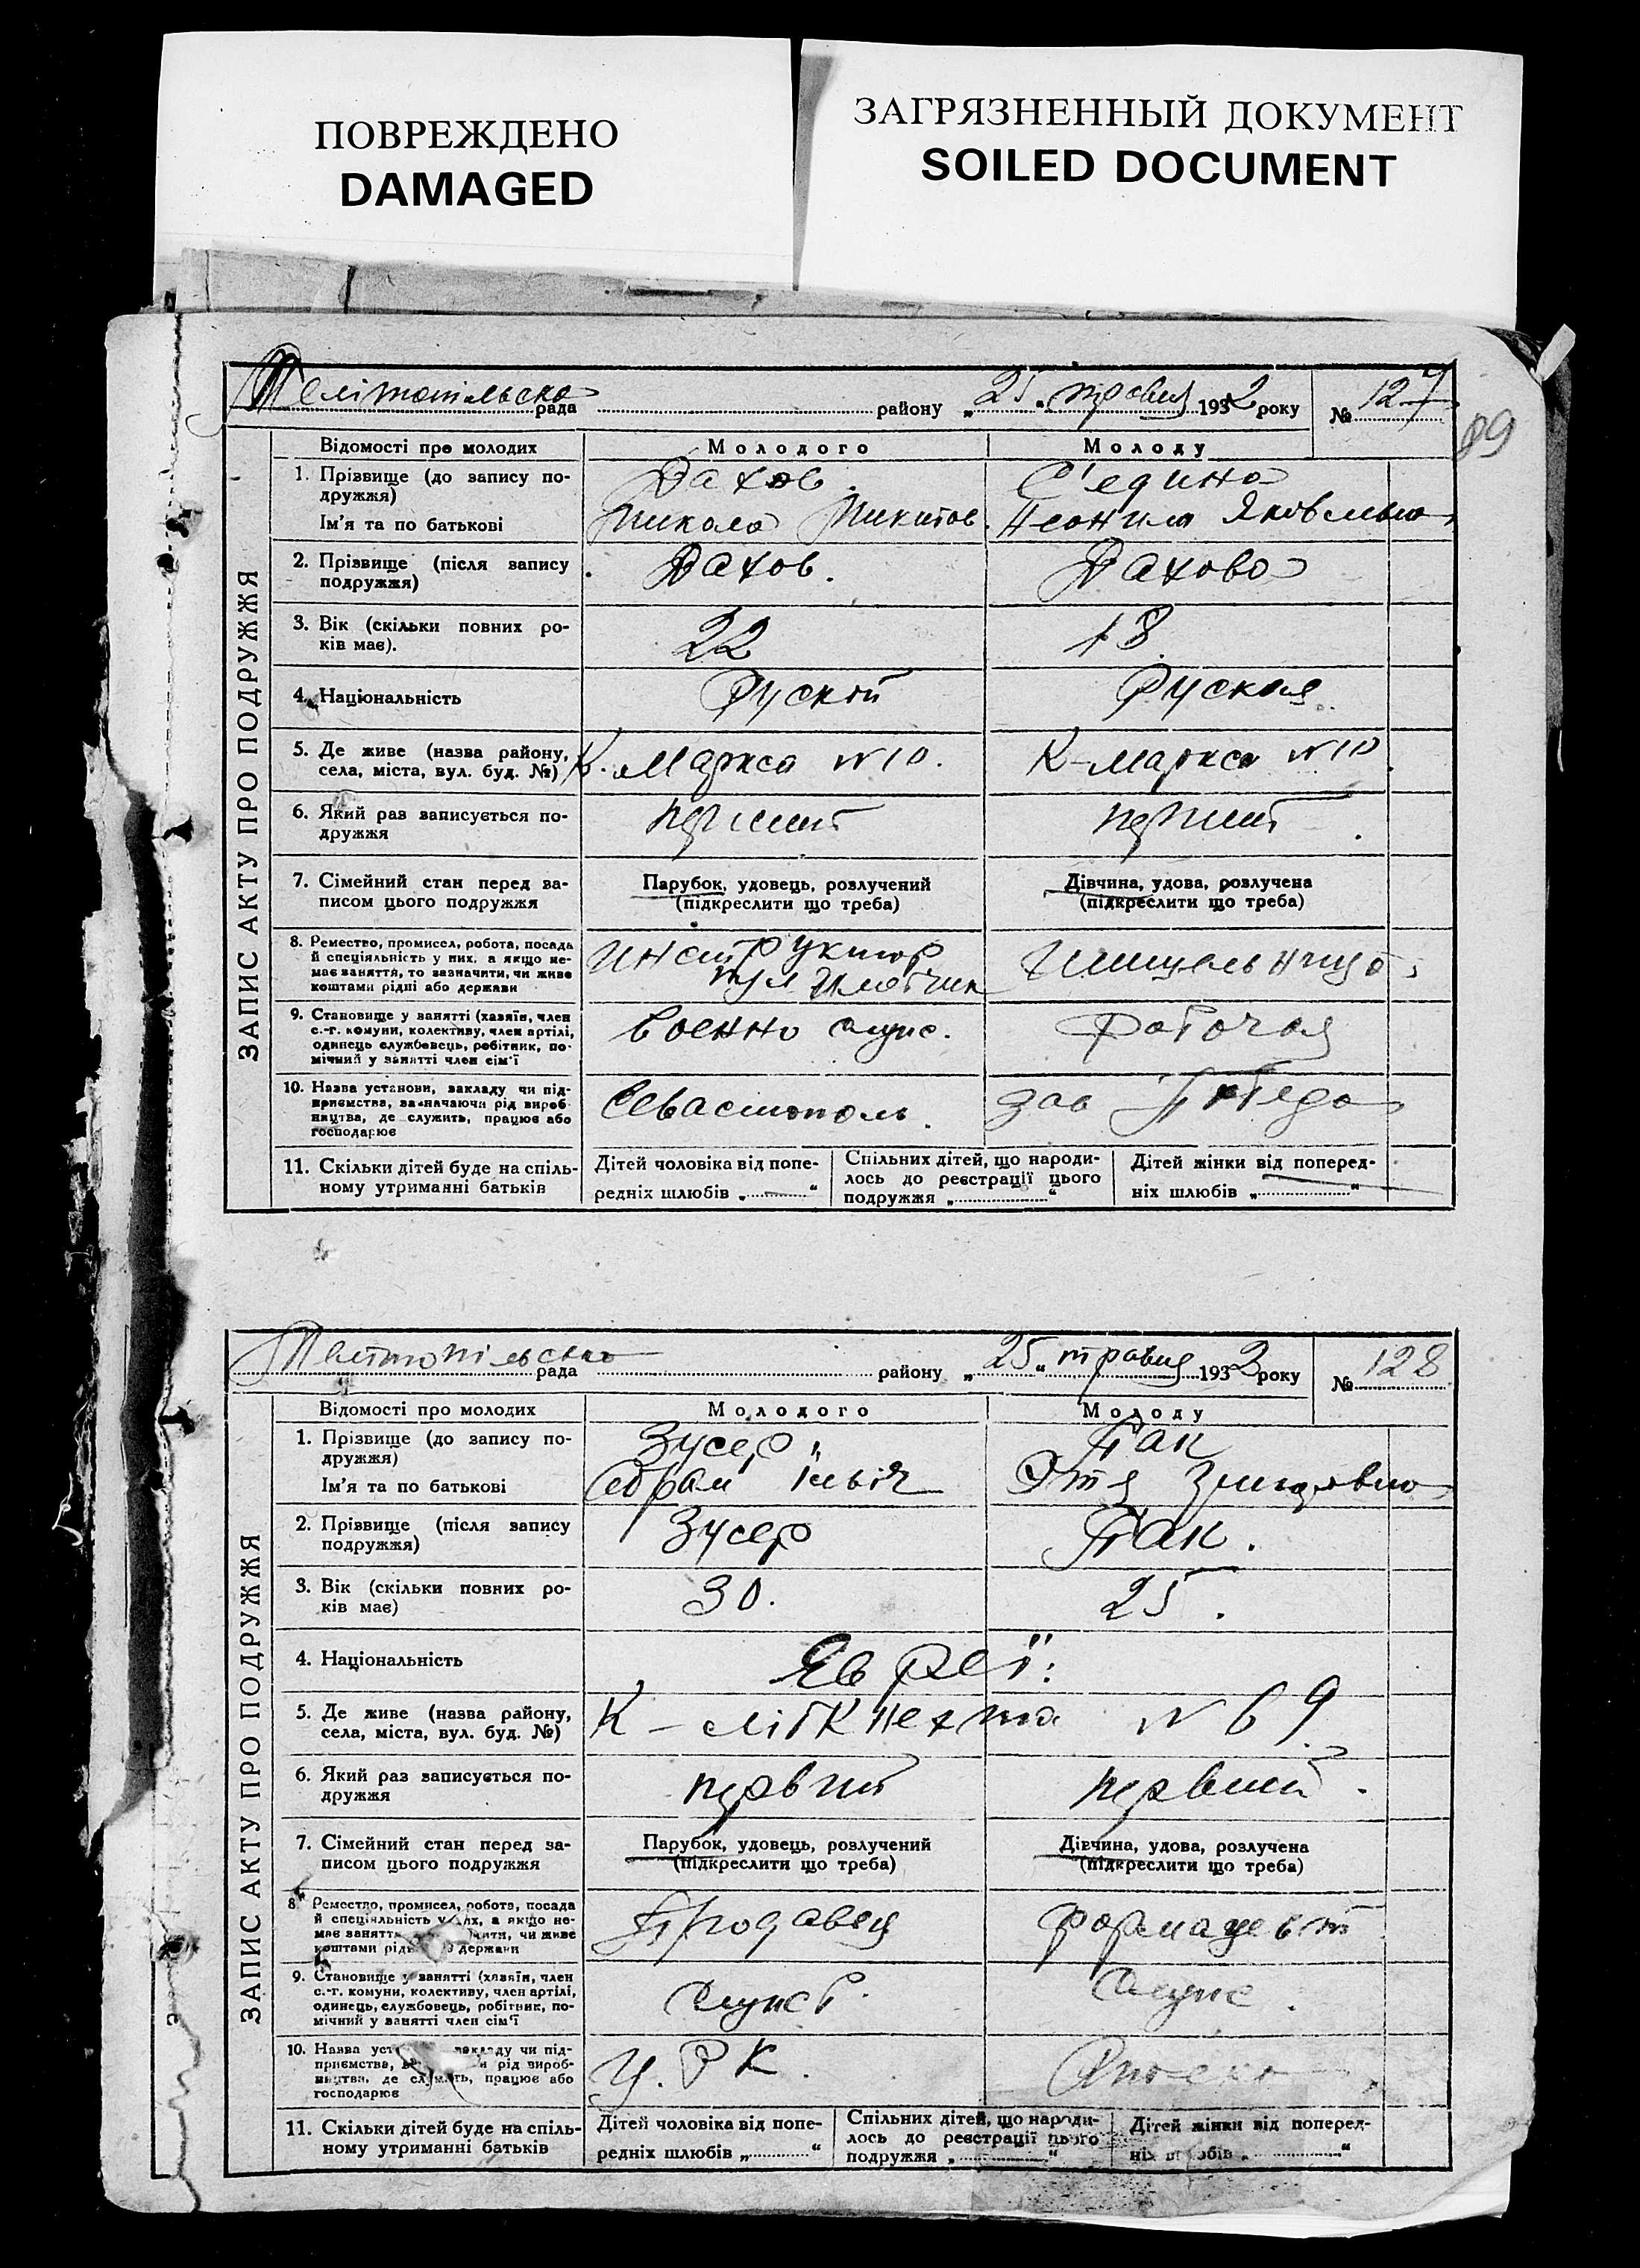 ПОВРЕЖДЕНО
DAMAGED
ЗАГРЯЗНЕННЫЙ ДОКУМЕНТ
SOILED DOCUMENT
89
ЗАПИС АКТУ ПРО ПОДРУЖЖЯ
Мелітопільска рада району „25“ травня 1932 року № 127
Відомості про молодих Молодого Молоду
1. Прізвище (до запису по-
дружжя)
Дахов С'єдина
Ім'я та по батькові Микола Микитов. Неонила Яковльвна
2. Прізвище (після запису
подружжя)
Дахов. Дахова
3. Вік (скільки повних ро-
ків має).
22 18
4. Національність Руский Руская
5. Де живе (назва району,
села, міста, вул. буд. №)
К. Маркса N 10. К-Маркса N 10
6. Який раз записується по-
дружжя
7. Сімейний стан перед за-
писом цього подружжя
Парубок, удовець, розлучений
(підкреслити що треба)
Дівчина, удова, розлучена
(підкреслити що треба)
8. Ремество, промисел, робота, посада
й спеціяльність у них, а якщо не-
має заняття, то зазначити, чи живе
коштами рідні або держави
инструктор
9. Становище у занятті (хазяїн, член
с.-г. комуни, колективу, член артілі,
одинець службовець, робітник, по-
мічний у занятті член сім'ї
Военно служ. Работая
10. Назва установи, закладу чи під-
приємства, зазначаючи рід вироб-
ництва, де служить, працює або
господарює
Севастополь. Зав Победа
11. Скільки дітей буде на спіль-
ному утриманні батьків
Дітей чоловіка від попе-
редніх шлюбів „ “
Спільних дітей, що народи-
лось до реєстрації цього
подружжя „ “
Дітей жінки від поперед-
ніх шлюбів „ “
ЗАПИС АКТУ ПРО ПОДРУЖЖЯ
Мелітопільска рада району „25“ травня 1932 року № 128
Відомості про молодих Молодого Молоду
1. Прізвище (до запису по-
дружжя)
Зусер Пак
Ім'я та по батькові Абрам Ільіч Этя
2. Прізвище (після запису
подружжя)
Зусер Пак.
3. Вік (скільки повних ро-
ків має)
30. 25.
4. Національність Євреї.
5. Де живе (назва району,
села, міста, вул. буд. №)
К-Лібкнехта N 69
6. Який раз записується по-
дружжя
первий первий.
7. Сімейний стан перед за-
писом цього подружжя
Парубок, удовець, розлучений
(підкреслити що треба)
Дівчина, удова, розлучена
(підкреслити що треба)
8. Ремество, промисел, робота, посада
й спеціяльність у них, а якщо не-
має заняття, чи живе
коштами рідні держави
Продавец Формацевт
9. Становище у занятті (хазяїн, член
с.-г. комуни, колективу, член артілі,
одинець, службовець, робітник, по-
мічний у занятті член сім'ї
Служб. Служ.
10. Назва закладу чи під-
приємства, рід вироб-
ництва, де служить, працює або
господарює
Ц.Р.К. Аптека
11. Скільки дітей буде на спіль-
ному утриманні батьків
Дітей чоловіка від попе-
редніх шлюбів „ “
Спільних дітей, що народи-
лось до реєстрації цього
подружжя „ “
Дітей жінки від поперед-
ніх шлюбів „ “